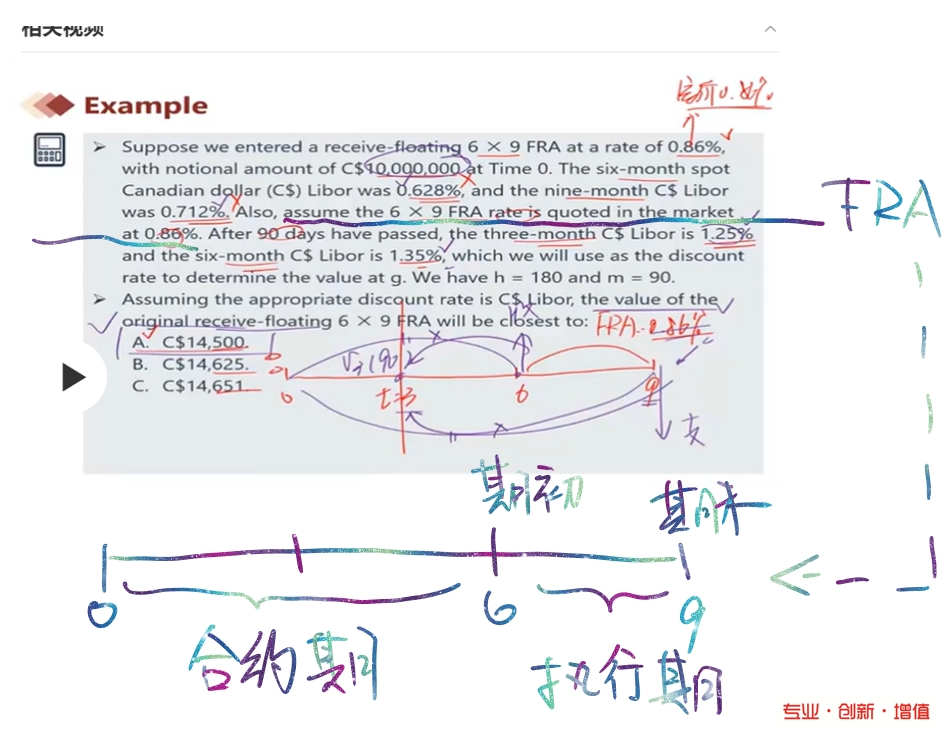 相关视频
定价0.86%
Example
➢ Suppose we entered a receive-floating 6 × 9 FRA at a rate of 0.86%,
with notional amount of C$10,000,000 at Time 0. The six-month spot
Canadian dollar (C$) Libor was 0.628%, and the nine-month C$ Libor
was 0.712%. Also, assume the 6 × 9 FRA rate is quoted in the market
at 0.86%. After 90 days have passed, the three-month C$ Libor is 1.25%
and the six-month C$ Libor is 1.35%, which we will use as the discount
rate to determine the value at g. We have h = 180 and m = 90.
➢ Assuming the appropriate discount rate is C$ Libor, the value of the
original receive-floating 6 × 9 FRA will be closest to: FRA 0.86%
A. C$14,500.
B. C$14,625.
C. C$14,651.
0 t=3 6 9
支
FRA
期初 期末
0 6 9
合约期 执行期
专业·创新·增值